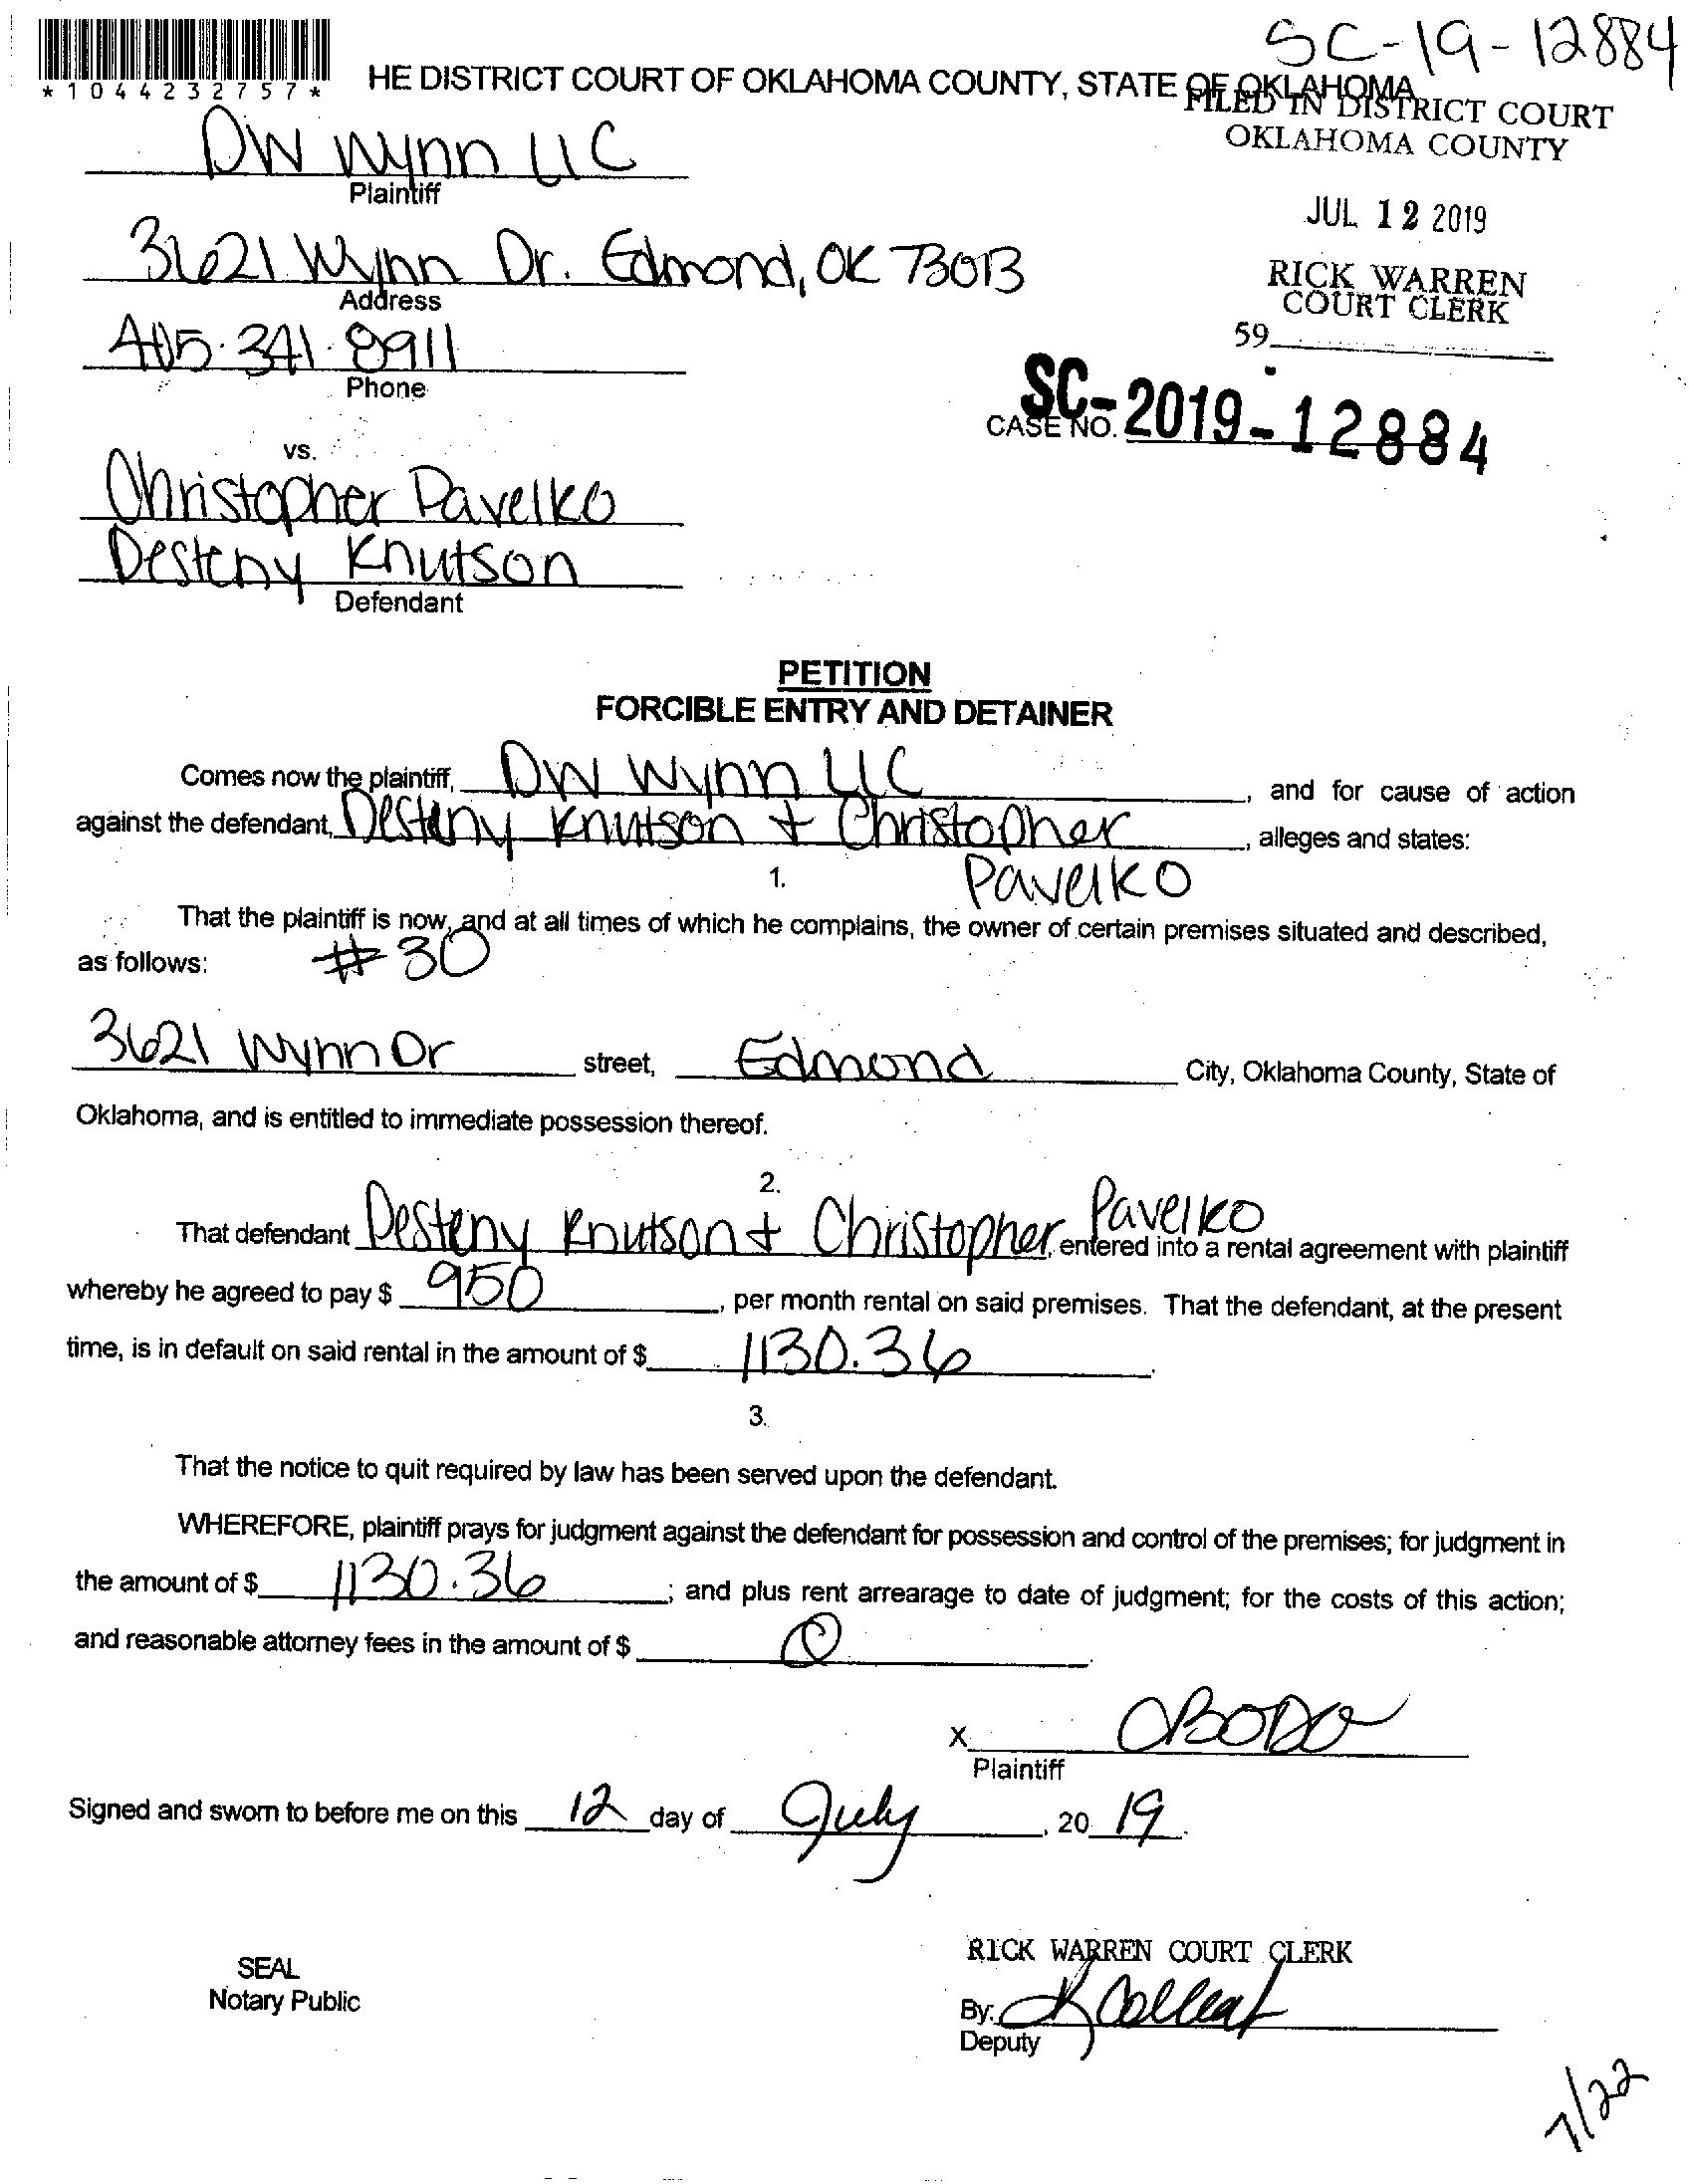 SC-19-12884
*1044232757*
HE DISTRICT COURT OF OKLAHOMA COUNTY, STATE OF OKLAHOMA
FILED IN DISTRICT COURT
OKLAHOMA COUNTY
DW Wynn LLC
Plaintiff
JUL 12 2019
3621 Wynn Dr. Edmond, OK 73013
Address
RICK WARREN
COURT CLERK
405.341.8911
59
Phone
CASE NO. SC-2019-12884
vs.
Christopher Pavelko
Desteny Knutson
Defendant
PETITION
FORCIBLE ENTRY AND DETAINER
Comes now the plaintiff, DW Wynn LLC, and for cause of action
against the defendant, Desteny Knutson + Christopher, alleges and states:
Pavelko
1.
That the plaintiff is now, and at all times of which he complains, the owner of certain premises situated and described,
as follows: #30
3621 Wynn Dr street, Edmond City, Oklahoma County, State of
Oklahoma, and is entitled to immediate possession thereof.
2.
That defendant Desteny Knutson + Christopher Pavelko, entered into a rental agreement with plaintiff
whereby he agreed to pay $ 950, per month rental on said premises. That the defendant, at the present
time, is in default on said rental in the amount of $ 1130.36.
3.
That the notice to quit required by law has been served upon the defendant.
WHEREFORE, plaintiff prays for judgment against the defendant for possession and control of the premises; for judgment in
the amount of $ 1130.36; and plus rent arrearage to date of judgment; for the costs of this action;
and reasonable attorney fees in the amount of $ 0.
X
Plaintiff
Signed and sworn to before me on this 12 day of July, 2019.
RICK WARREN COURT CLERK
SEAL
Notary Public
By:
Deputy
7/22